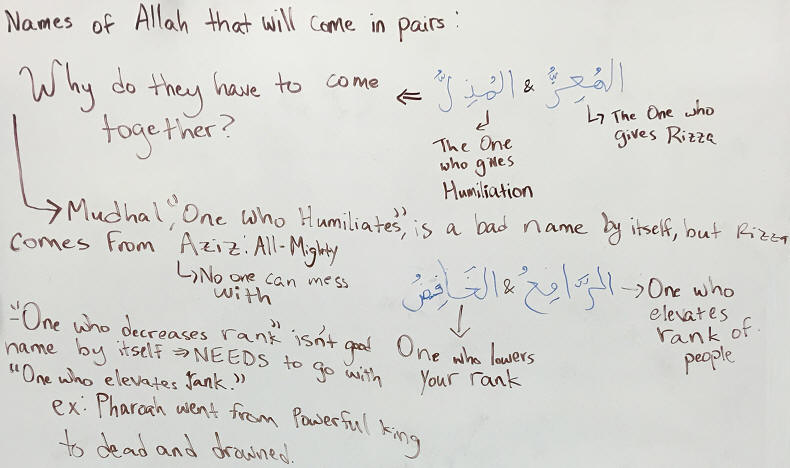 Names of Allah that will come in pairs:
Why do they have to come together?
⇐ المُذِلُّ & المُعِزُّ
↳ The One who
gives Rizza
The One
who gives
Humiliation
→ Mudhal, "One who Humiliates", is a bad name by itself, but Rizza
comes from Aziz: All-Mighty
↳ No one can mess
with
الخَافِضُ & الرَّافِعُ → One who
elevates
rank of
people
One who lowers
your rank
- "One who decreases rank" isn't good
name by itself ⇒ NEEDS to go with
"One who elevates rank."
ex: Pharoah went from Powerful king
to dead and drowned.